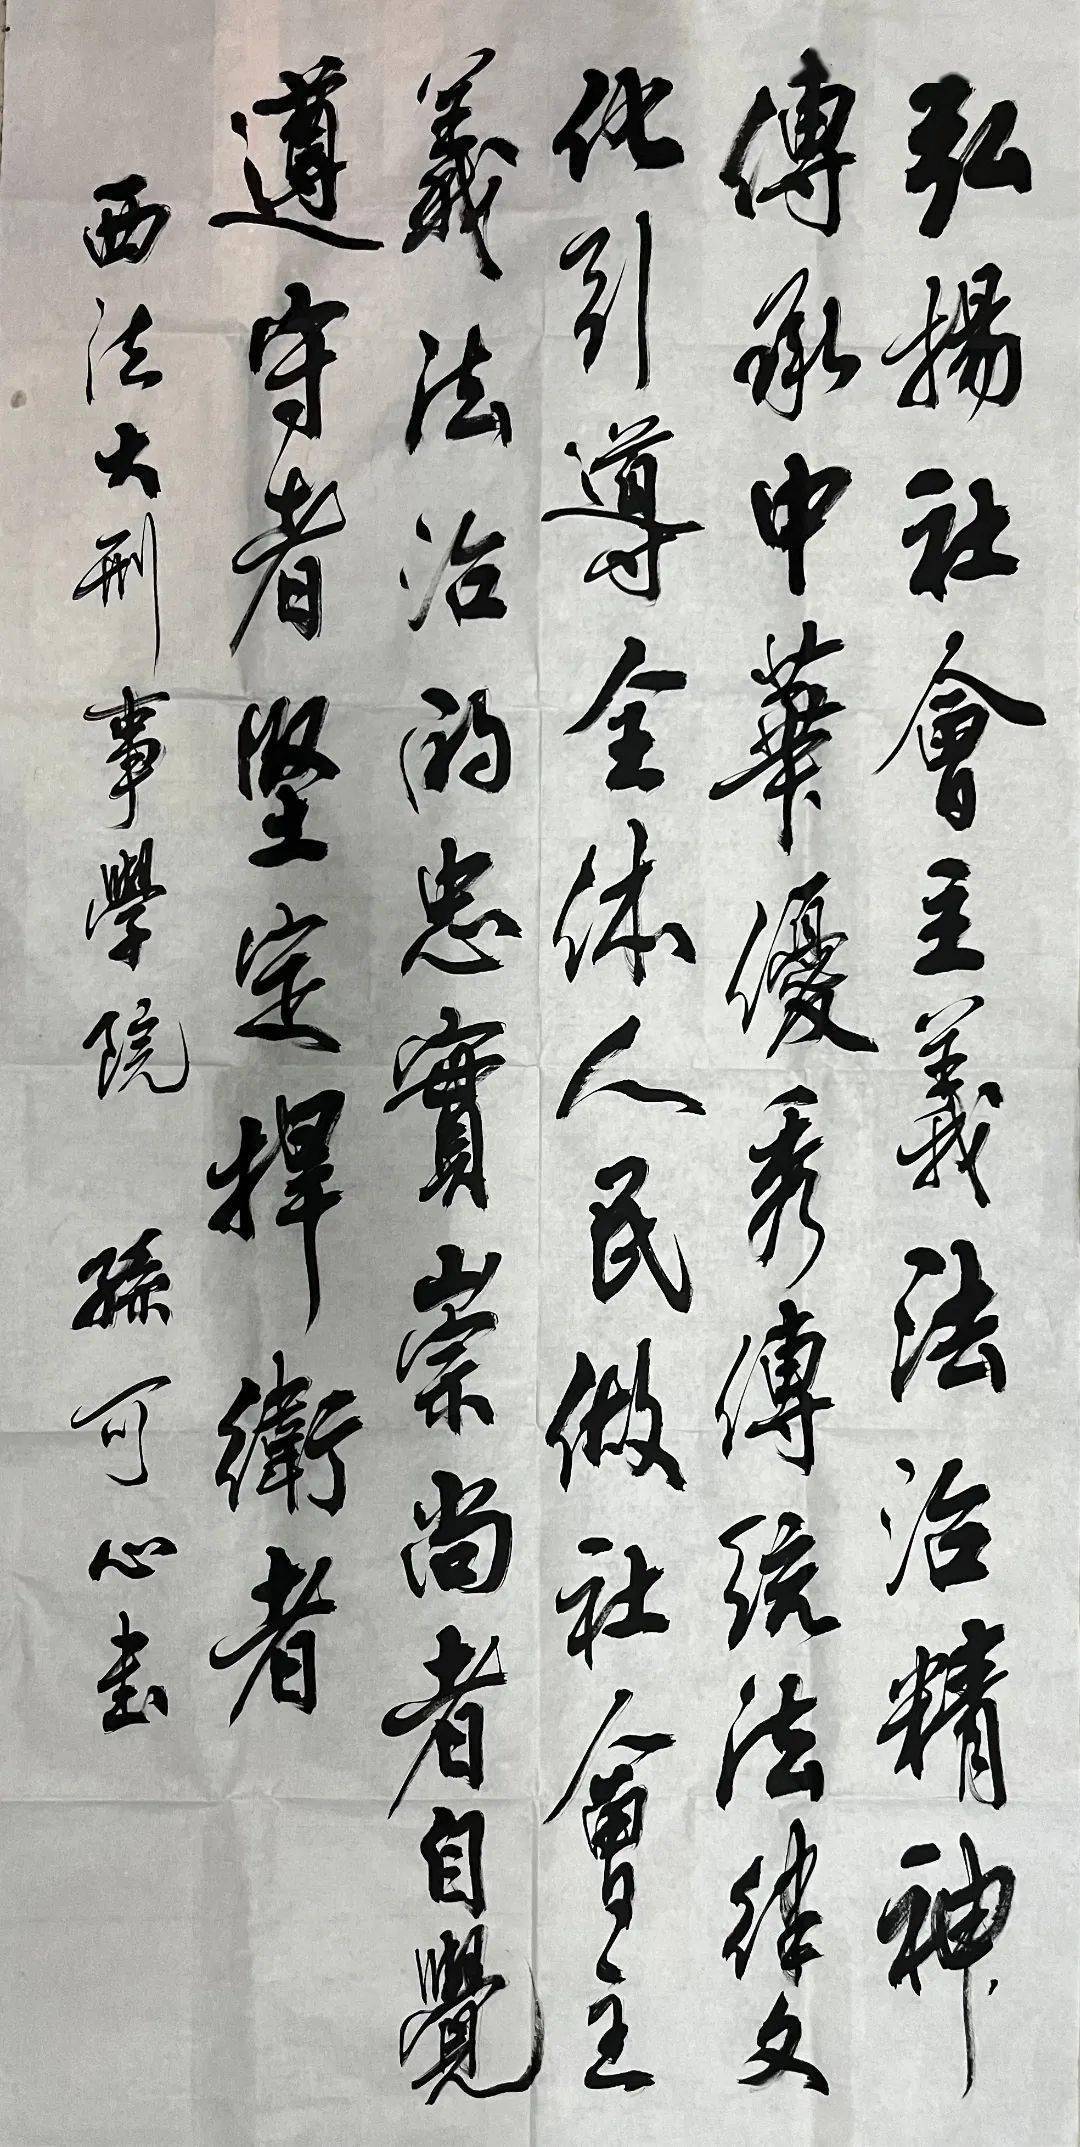 弘揚社會主義法治精神
傳承中華優秀傳統法律文
化引導全体人民做社會主
義法治的忠實崇尚者自覺
遵守者堅定捍衛者
西法大刑事學院 孫可心書